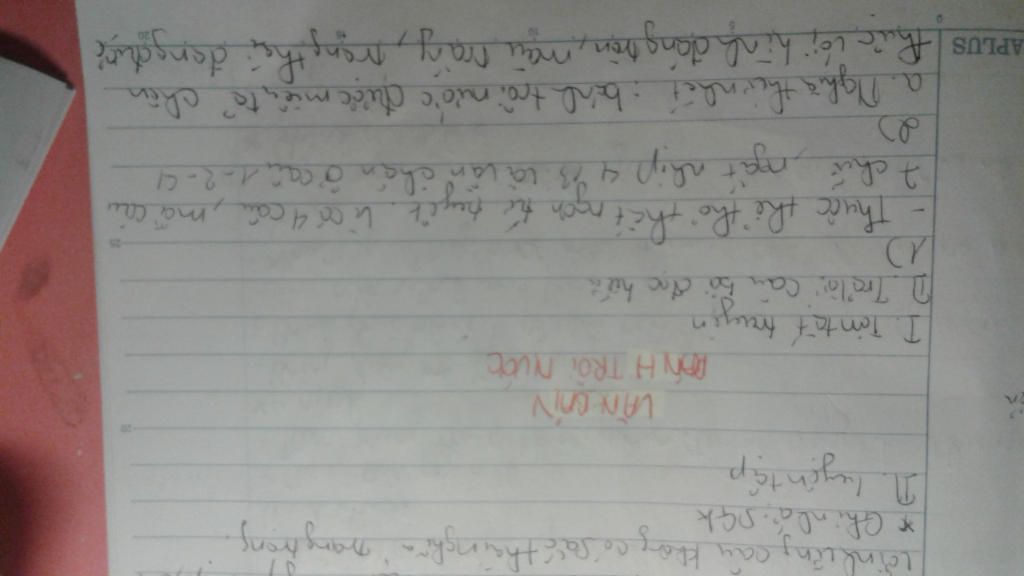 lời những câu không có sắc thái nghĩa trang trọng.
* Ghi nhớ: SGK
II. Luyện tập
VĂN BẢN
BÁNH TRÔI NƯỚC
I. Tóm tắt truyện
II. Trả lời câu hỏi đọc hiểu
1)
- Thuộc thể thơ thất ngôn tứ tuyệt. Vì có 4 câu, mỗi câu
7 chữ, ngắt nhịp 4/3 là vần chân ở câu 1-2-4
2)
a. Nghĩa thứ nhất: bánh trôi nước được miêu tả chân
thực với hình dáng tròn, màu trắng, trạng thái đang được
APLUS